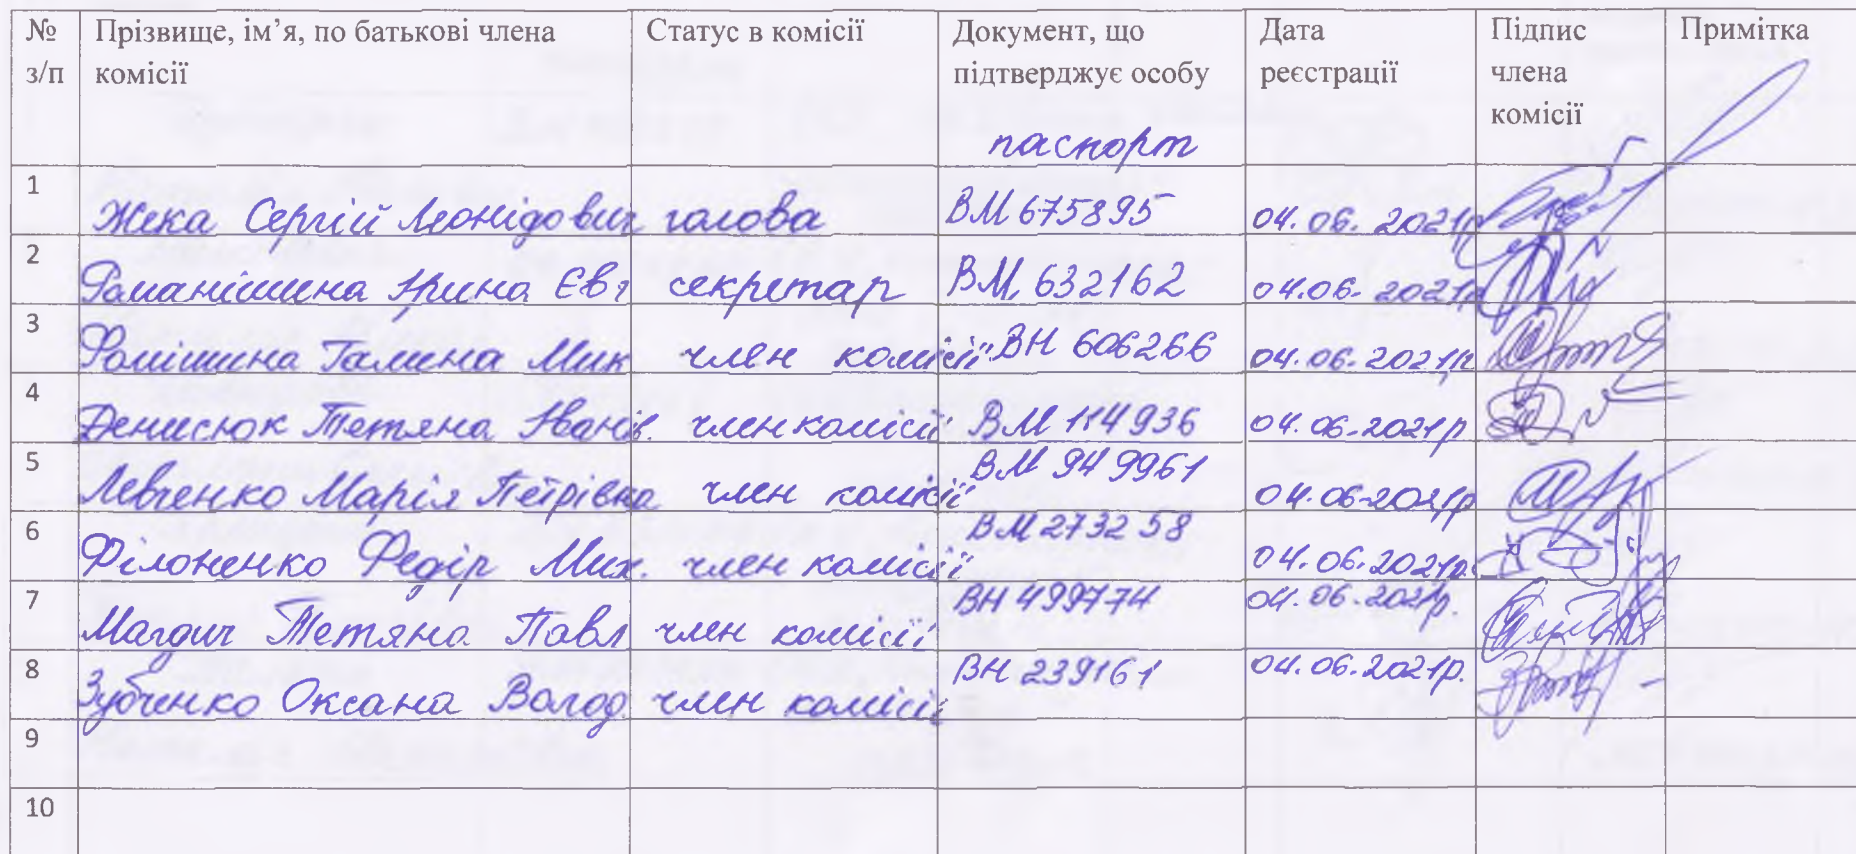 № з/п Прізвище, ім’я, по батькові члена комісії Статус в комісії Документ, що підтверджує особу паспорт Дата реєстрації Підпис члена комісії Примітка
1 Жека Сергій Леонідович голова ВМ 675895 04.06.2021р
2 Романішина Ірина Євг секретар ВМ 632162 04.06.2021р
3 Галина Мик член комісії ВН 606266 04.06.2021р
4 Денисюк Тетяна Іванів. член комісії ВМ 114936 04.06.2021р
5 Левченко Марія Петрівна член комісії ВМ 949961 04.06.2021р
6 Філоненко Федір Мих. член комісії ВМ 273258 04.06.2021р.
7 Магдич Тетяна Павл член комісії ВН 499774 04.06.2021р.
8 Зубченко Оксана Волод. член комісії ВН 239161 04.06.2021р.
9
10